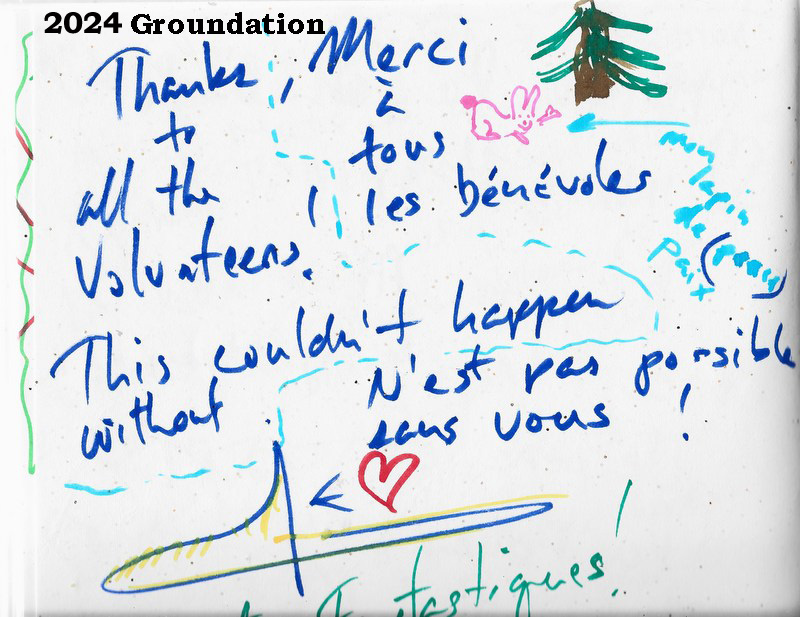 2024 Groundation
Thanks,
to
all the
Volunteers.
Merci
à
tous
les bénévoles
!
mon lapin
de (peace)
paix
This couldn't happen
without
N'est pas possible
sans vous !
Fantastiques!